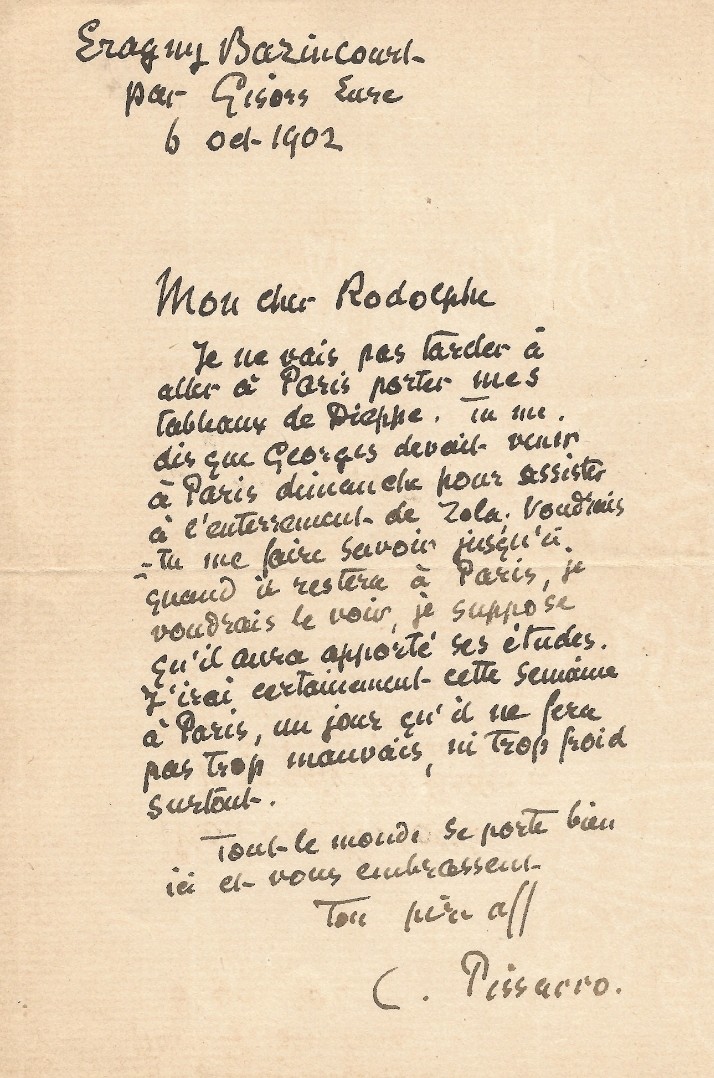 Eragny Bazincourt
par Gisors Eure
6 oct 1902
Mon cher Rodolphe
Je ne vais pas tarder à
aller à Paris porter mes
tableaux de Dieppe. Tu me
dis que Georges devait venir
à Paris dimanche pour assister
à l'enterrement de Zola. Voudrais
-tu me faire savoir jusqu'à
quand il restera à Paris, je
voudrais le voir, je suppose
qu'il aura apporté ses études.
J'irai certainement cette semaine
à Paris, un jour qu'il ne fera
pas trop mauvais, ni trop froid
surtout.
Tout le monde se porte bien
ici et vous embrassent
Ton père aff
C. Pissarro.